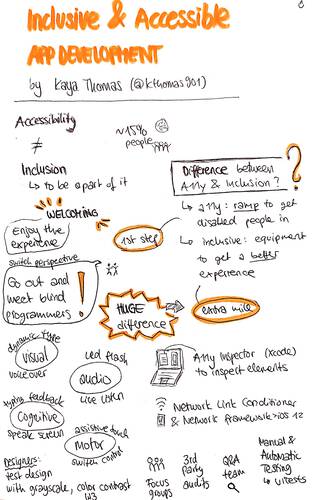 Inclusive & Accessible
APP DEVELOPMENT
by Kaya Thomas (@kthomas901)
Accessibility
≠
~15%
people
Inclusion
↳ to be a part of it
Difference between
A11y & Inclusion?
?
WELCOMING
Enjoy the
experience
1st step
↳ a11y: ramp to get
disabled people in
↳ inclusive: equipment
to get a better
experience
Switch perspective
Go out and
meet blind
programmers!
HUGE
difference
extra mile
dynamic type
visual
voiceover
Led flash
audio
Live listen
A11y Inspector (Xcode)
to inspect elements
typing feedback
Cognitive
speak screen
assistive touch
Motor
switch control
Network Link Conditioner
& Network framework >iOS 12
Designers:
test design
with grayscale, color contrast
Focus
groups
3rd
party
audits
Q&A
team
Manual &
Automatic
Testing
↳ UITests